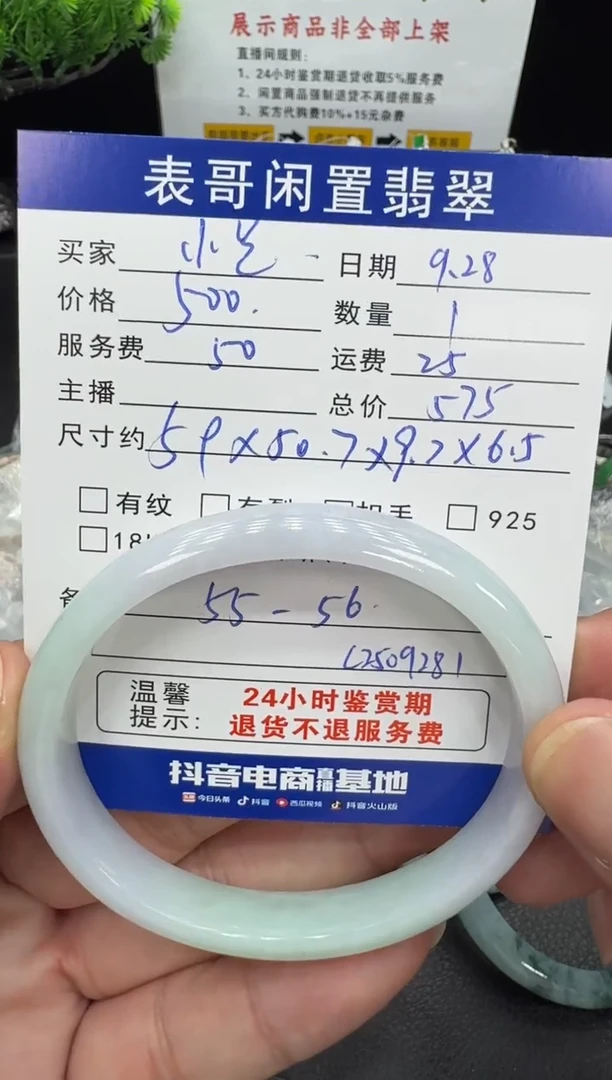 展示商品非全部上架
直播间规则:
1、24小时鉴赏期退货收取5%服务费
2、闲置商品强制退货不再提供服务
3、买方代购费10%+15元杂费
表哥闲置翡翠
买家 日期 9.28
价格 500. 数量 1
服务费 50 运费 25
主播 总价 575
尺寸约 59×50.7×9.7×6.5
有纹 925
18
55-56.
L2509281
温馨 24小时鉴赏期
提示: 退货不退服务费
抖音电商直播基地
今日头条 抖音 西瓜视频 抖音火山版